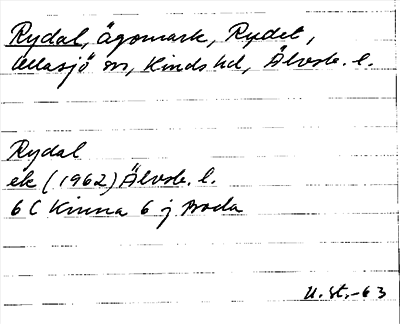 Rydal, ägomark, Rydet,
Ullasjö sn, Kinds hd, Älvsb. l.
Rydal
ek (1962) Älvsb. l.
6 C Kinna 6 j Broda
U. St. -63